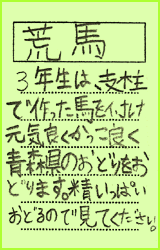 荒馬
3年生は、支柱
で作った馬を付け
元気良くかっこ良く
青森県のおどりをお
どります。精いっぱい
おどるので見てください。